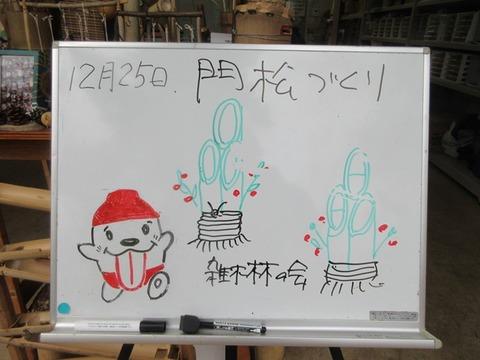 12月25日 門松づくり
雑木林の会